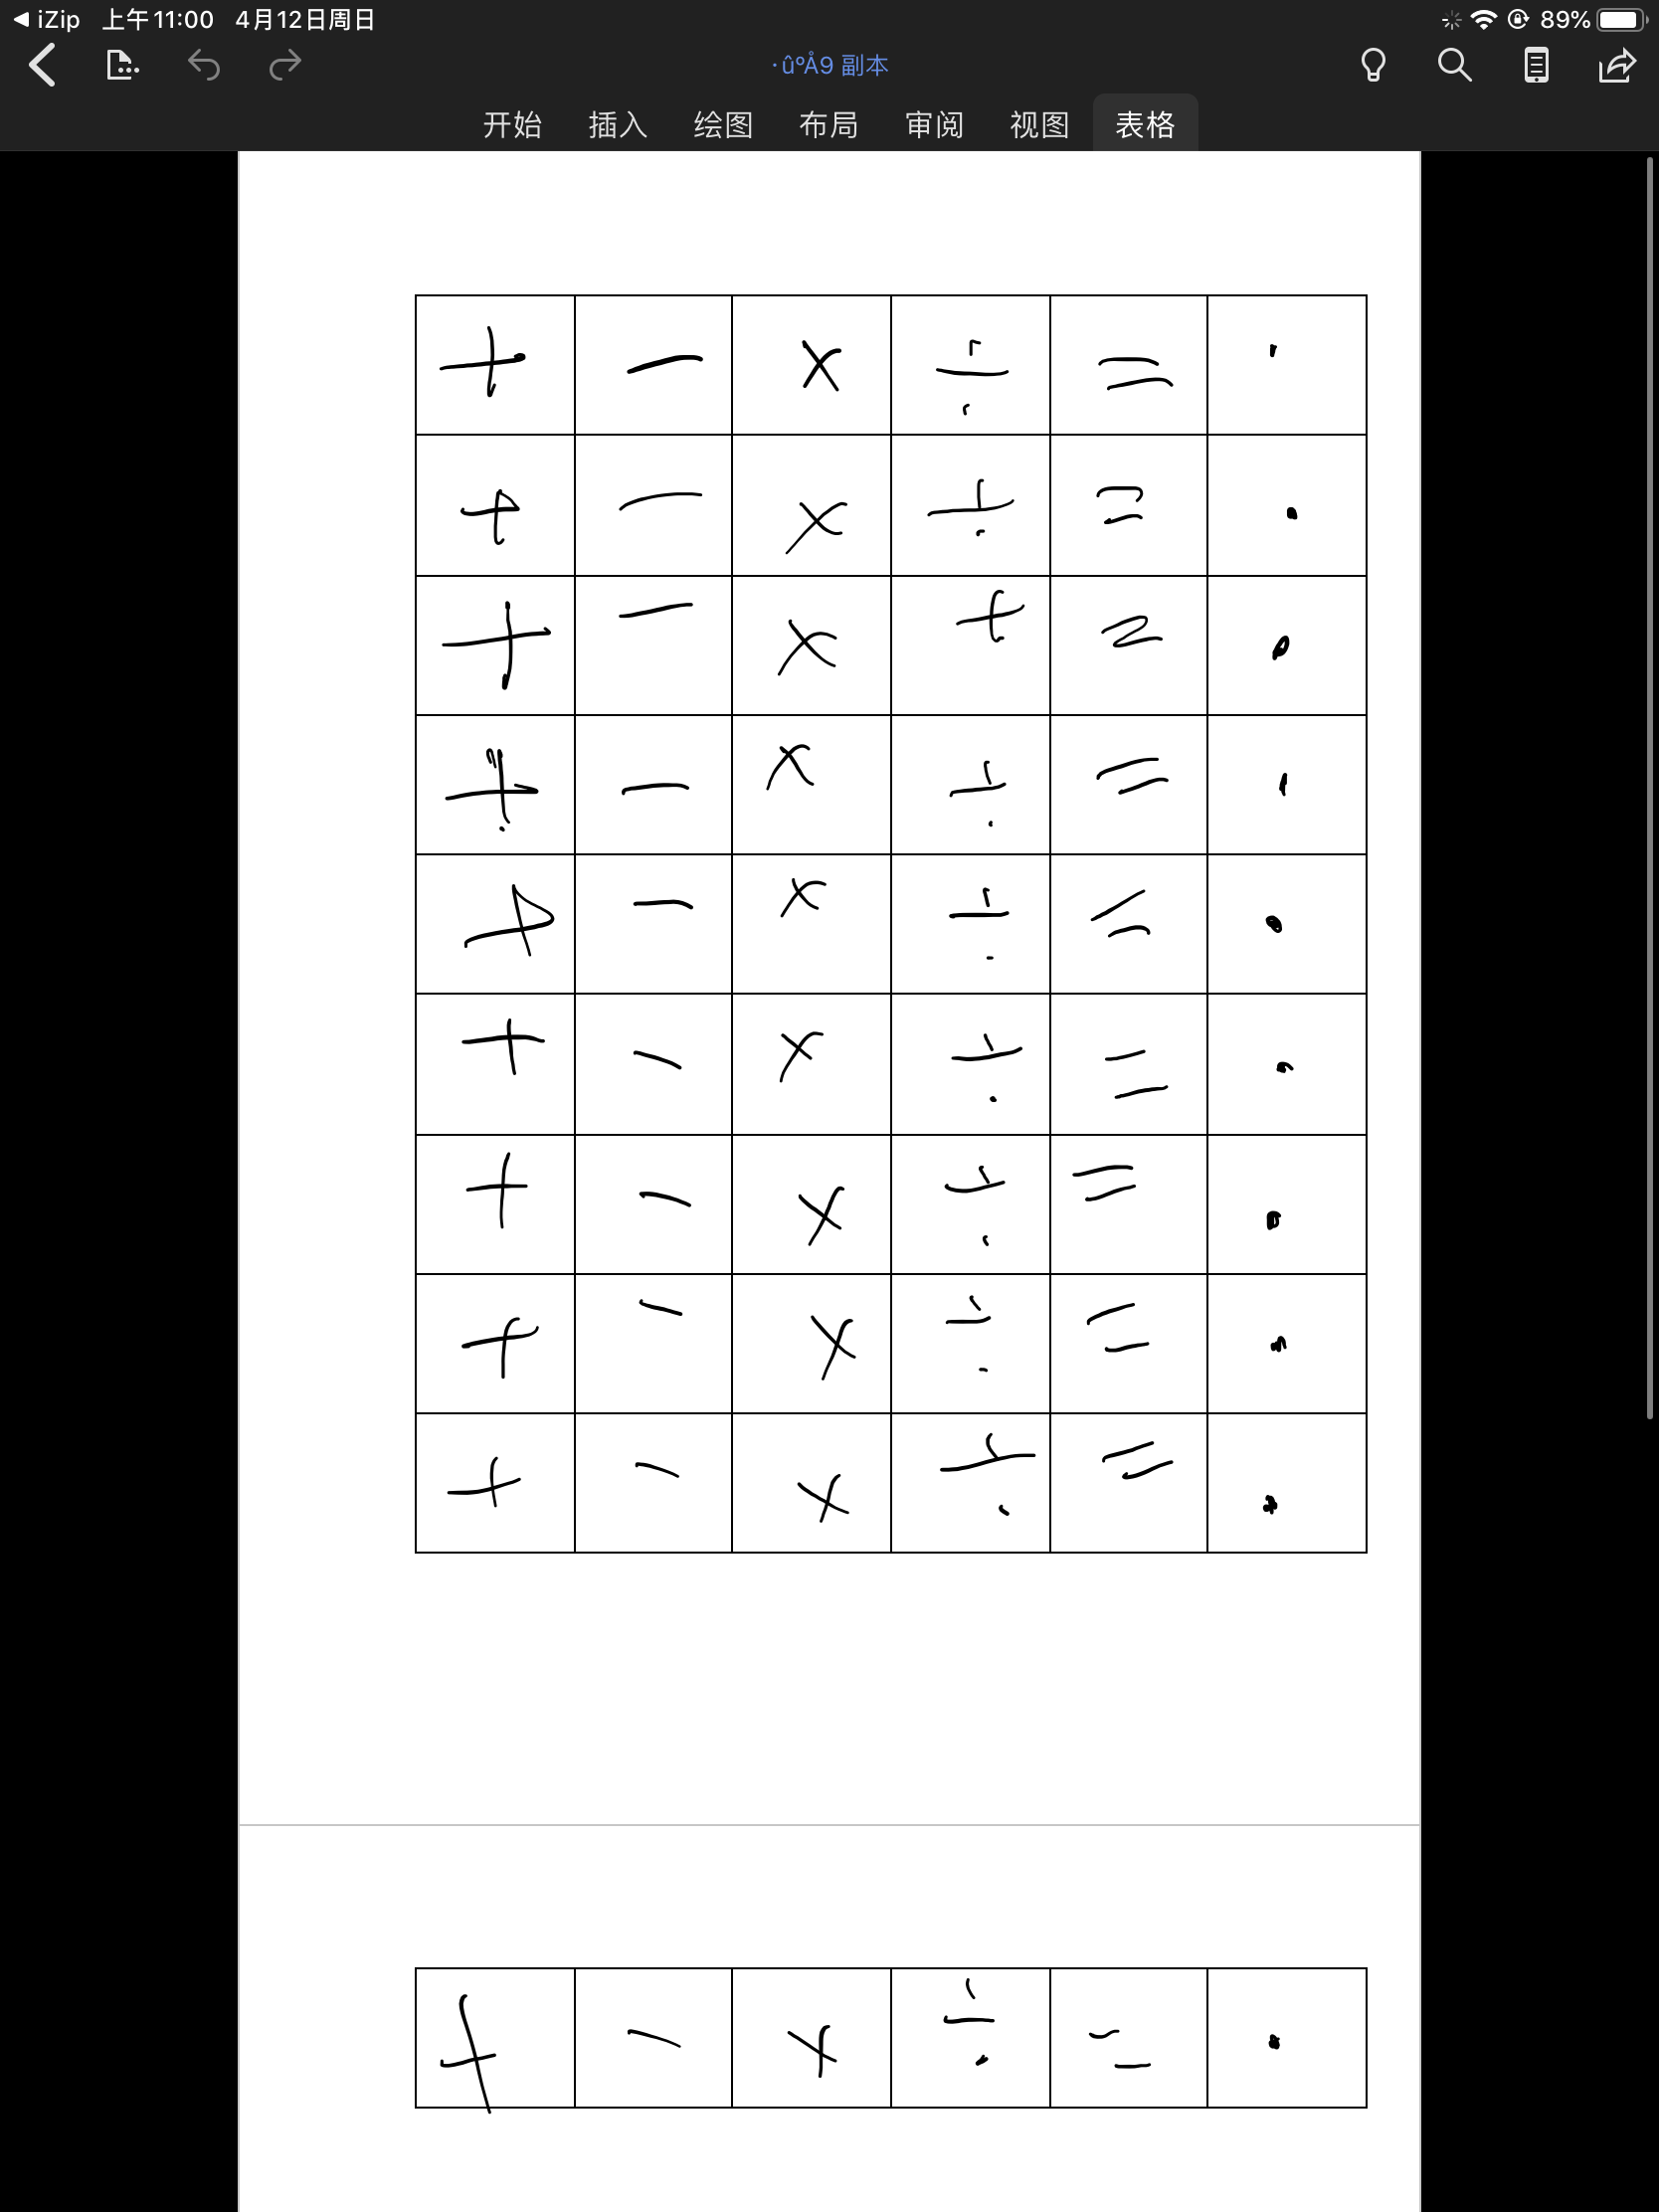 iZip 上午11:00 4月12日周日 89%
·ûºÅ9 副本
开始 插入 绘图 布局 审阅 视图 表格
+ − × ÷ = ·
+ − × ÷ = ·
+ − × + = ·
+ − × ÷ = ·
+ − × ÷ = ·
+ − × ÷ = ·
+ − × ÷ = ·
+ − × ÷ = ·
+ − × ÷ = ·
+ − × ÷ = ·